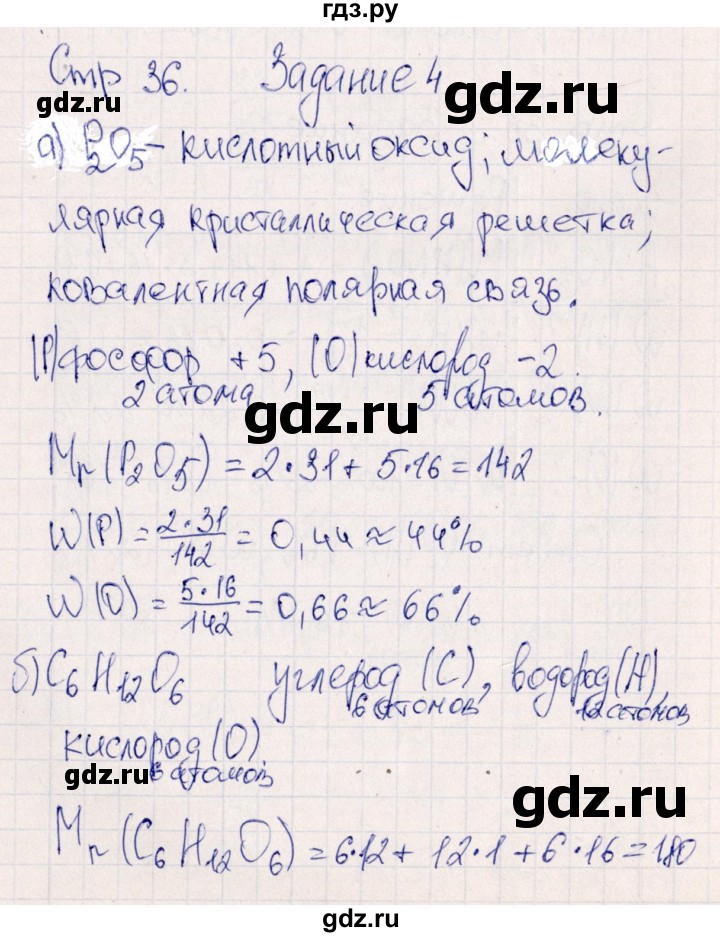 гдз.ру
Стр 36. Задание 4
gdz.ru gdz.ru
а) P₂O₅ – кислотный оксид; молеку-
gdz.ru
лярная кристаллическая решетка;
ковалентная полярная связь.
(P) фосфор +5, (O) кислород -2.
2 атома 5 атомов.
gdz.ru
Mr(P₂O₅) = 2·31 + 5·16 = 142
W(P) = 2·31/142 = 0,44 ≈ 44%
W(O) = 5·16/142 = 0,66 ≈ 66%
gdz.ru
б) C₆H₁₂O₆ углерод (C), водород (H),
6 атомов 12 атомов
кислород (O)
6 атомов
gdz.ru gdz.ru
Mr(C₆H₁₂O₆) = 6·12 + 12·1 + 6·16 = 180
gdz.ru